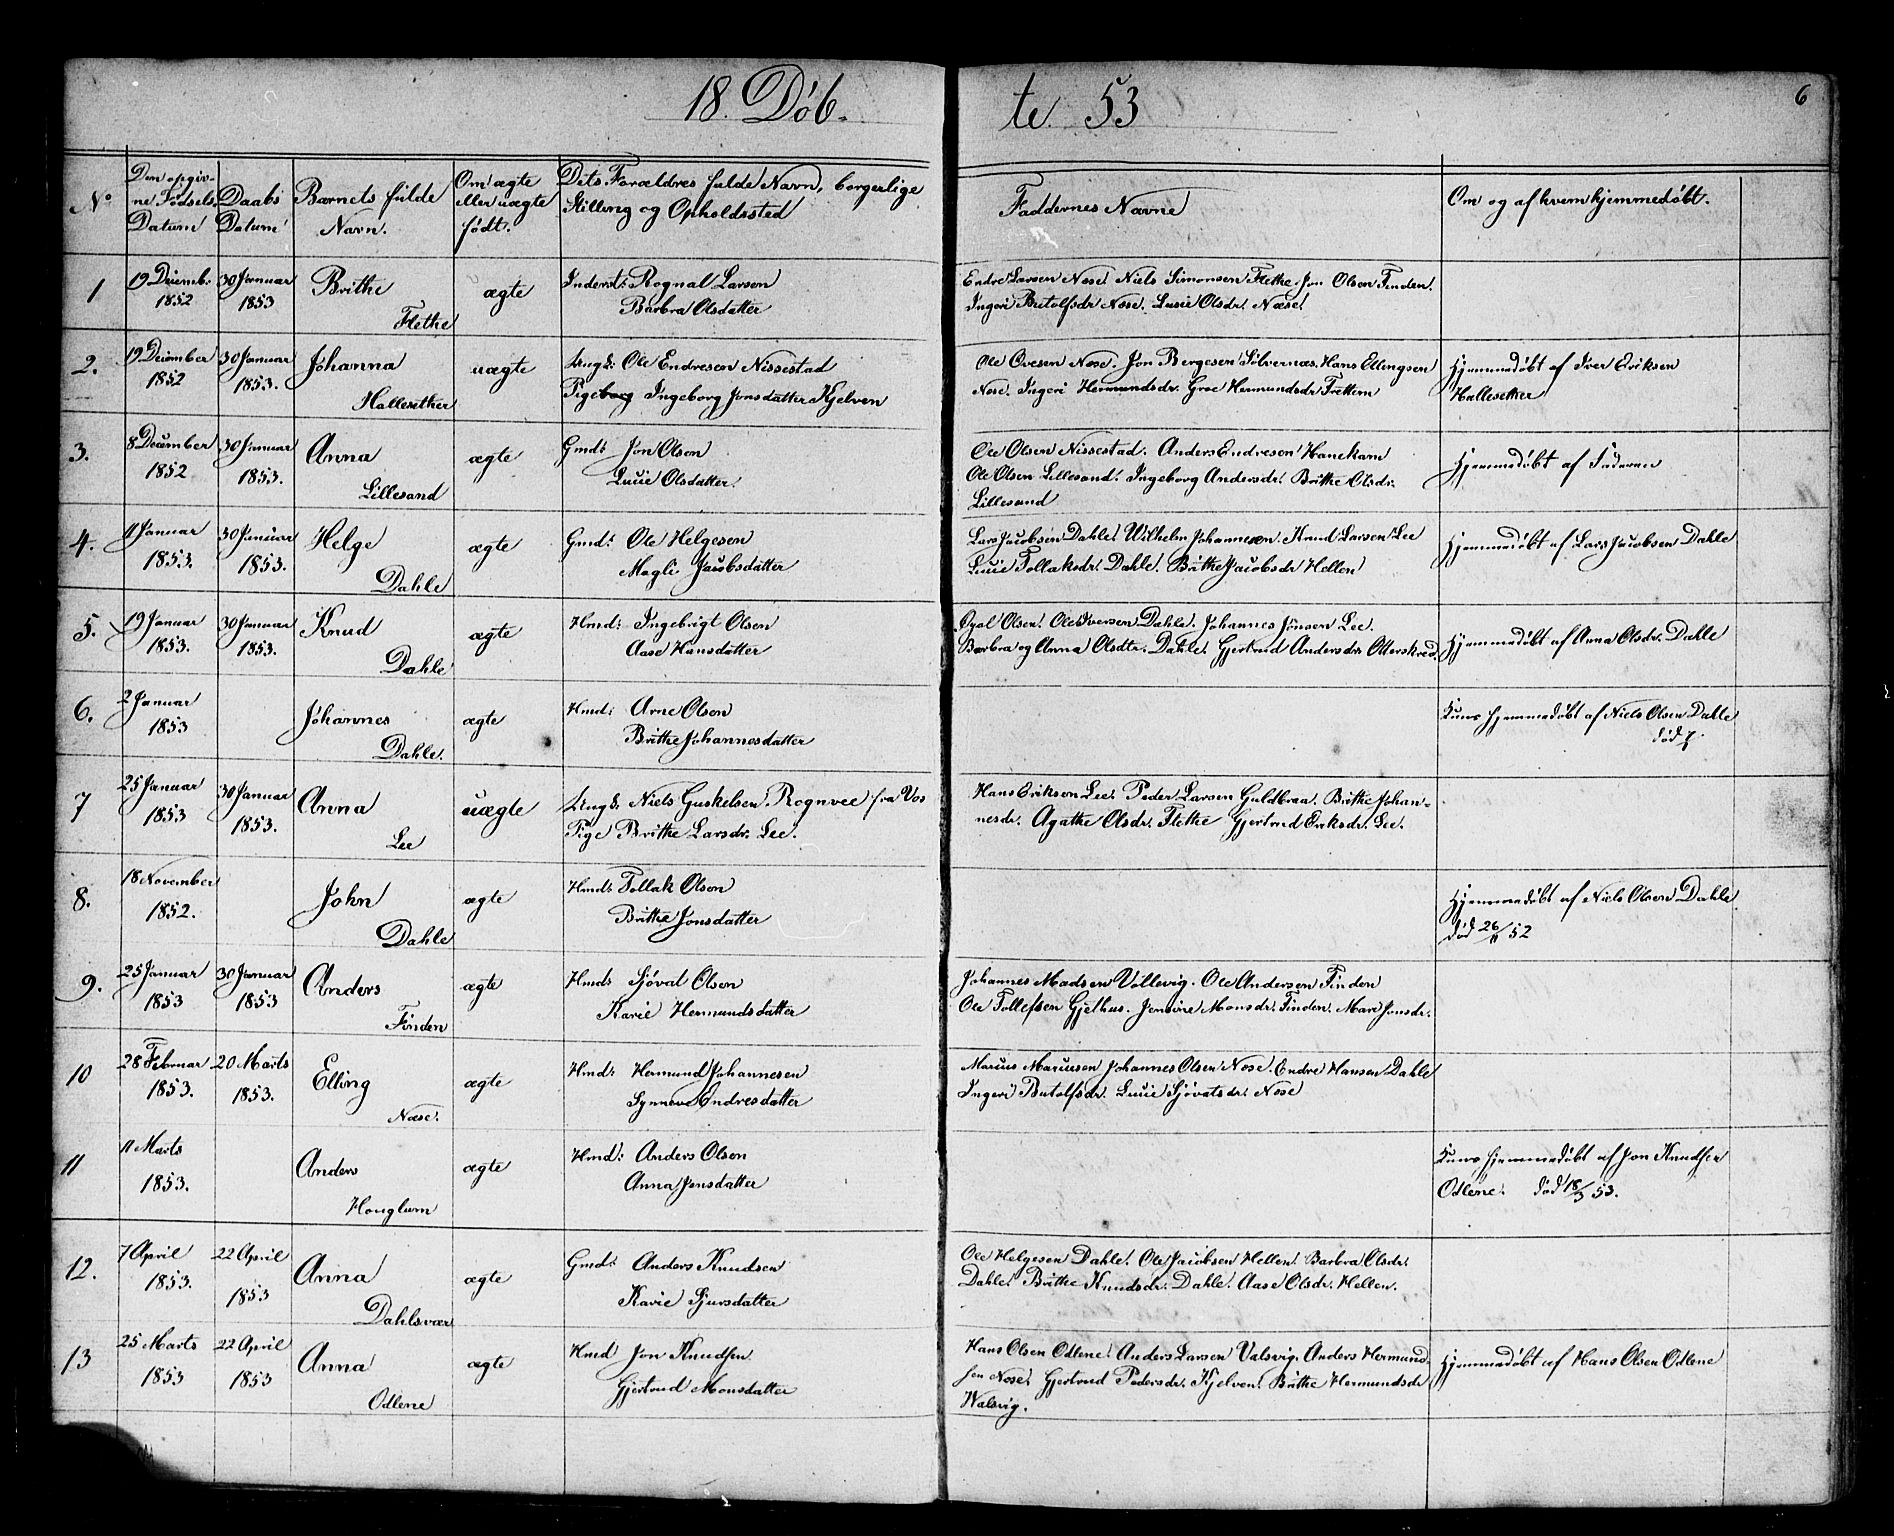 18. Døb-
te 53
6
No
Den opgiv-
ne Fødsels
Datum
Daabs
Datum
Barnets fulde
Navn.
Om ægte
eller uægte
født.
Dets Forældres fulde Navn, borgerlige
Stilling og Opholdssted
Faddernes Navne
Om og af hvem hjemmedøbt.
1
19 Decemb.
1852
30 Januar
1853
Brithe
Flethe
ægte
Inderst: Rognal Larsen
Barbra Olsdatter
Endre Larsen Nose. Niels Simonsen Flethe. Jon Olsen Finden.
Ingeri Butolfsdr Nose. Lucie Olsdr. Næse.
2.
19 December
1852
30 Januar
1853.
Johanna
Hallesether
uægte
Ungk: Ole Endresen Nissestad
Pige Ingeborg Jonsdatter Kjelven
Ole Ovesen Nose. Jon Bergesen Sølvernæs. Hans Ellingsen
Nose. Ingeri Hermundsdr. Groe Hermundsdr Frettem
Hjemmedøbt af Iver Eriksen
Hallesether
3.
8 December
1852
30 Januar
1853.
Anna
Lillesand
ægte
Gmd: Jon Olsen
Lucie Olsdatter.
Ole Olsen Nissestad. Anders Endresen Hanekam
Ole Olsen Lillesand. Ingeborg Andersdr. Brithe Olsdr.
Lillesand
Hjemmedøbt af Faderen
4.
11 Januar
1853.
30 Januar
1853.
Helge
Dahle
ægte
Gmd: Ole Helgesen
Magli Jacobsdatter
Lars Jacobsen Dahle. Wilhelm Johannesen. Knud Larsen Lee
Lucie Tollaksdr. Dahle. Brithe Jacobsdr Hellen
Hjemmedøbt af Lars Jacobsen Dahle
5.
19 Januar
1853.
30 Januar
1853.
Knud
Dahle
ægte
Hmd: Ingebrigt Olsen
Aase Hansdatter
Olsen. Ole Iversen Dahle. Johannes Jonsen Lee.
Barbra og Anna Olsdtr. Dahle. Gjertrud Andersdr. Otterskred.
Hjemmedøbt af Anna Olsdr. Dahle
6.
2 Januar
1853
Johannes
Dahle.
ægte
Hmd: Arne Olsen
Brithe Johannesdatter
Kuns hjemmedøbt af Niels Olsen Dahle
død
7
25 Januar
1853
30 Januar
1853.
Anna
Lee
uægte
Ungk. Niels Guskelsen Rognvee fra Vos
Pige Brithe Larsdr. Lee.
Hans Eriksen Lee. Peder Larsen Guldbraa. Brithe Johan-
nesdr. Agathe Olsdr. Flethe Gjertrud Eriksdr. Lee.
8.
18 November
1852.
John
Dahle
ægte
Hmd: Tollak Olsen
Brithe Jonsdatter
Hjemmedøbt af Niels Olsen Dahle.
død 26/11 52
9.
25 Januar
1853
30 Januar
1853
Anders
Finden
ægte
Hmd: Sjøval Olsen
Karie Hermundsdatter
Johannes Madsen Vollevig. Ole Andersen Finden
Ole Tollefsen Gjelhus. Jensine Monsdr. Finden. Mari Jonsdr.
10
28 Februar
1853.
20 Marts
1853.
Elling
Næse.
ægte
Hmd: Hermund Johannesen
Synneve Endresdatter
Marius Mariusen Johannes Olsen Nose. Endre Hansen Dahle
Ingeri Butolfsdr. Lucie Sjøvatsdr. Nose
11
11 Marts
1853.
Anders
Houglum
ægte
Hmd: Anders Olsen
Anna Jensdatter
Kuns hjemmedøbt af Jon Knudsen
Odlene. død 18/3 53.
12.
7 April
1853.
22 April
1853
Anna
Dahlsvær
ægte
Gmd: Anders Knudsen
Karie Sjursdatter
Ole Helgesen Dahle. Ole Jacobsen Hellen. Barbra Olsdr.
Dahle. Brithe Knudsdr. Dahle. Aase Olsdr. Hellen.
13
25 Marts
1853
22 April
1853
Anna
Odlene
ægte
Hmd Jon Knudsen
Gjertrud Monsdatter
Hans Olsen Odlene. Anders Larsen Valsvig. Anders Hermund-
sen Nose. Gjertrud Pedersdr. Kjelven. Brithe Hermundsdr
Walsvig.
Hjemmedøbt af Hans Olsen Odlene